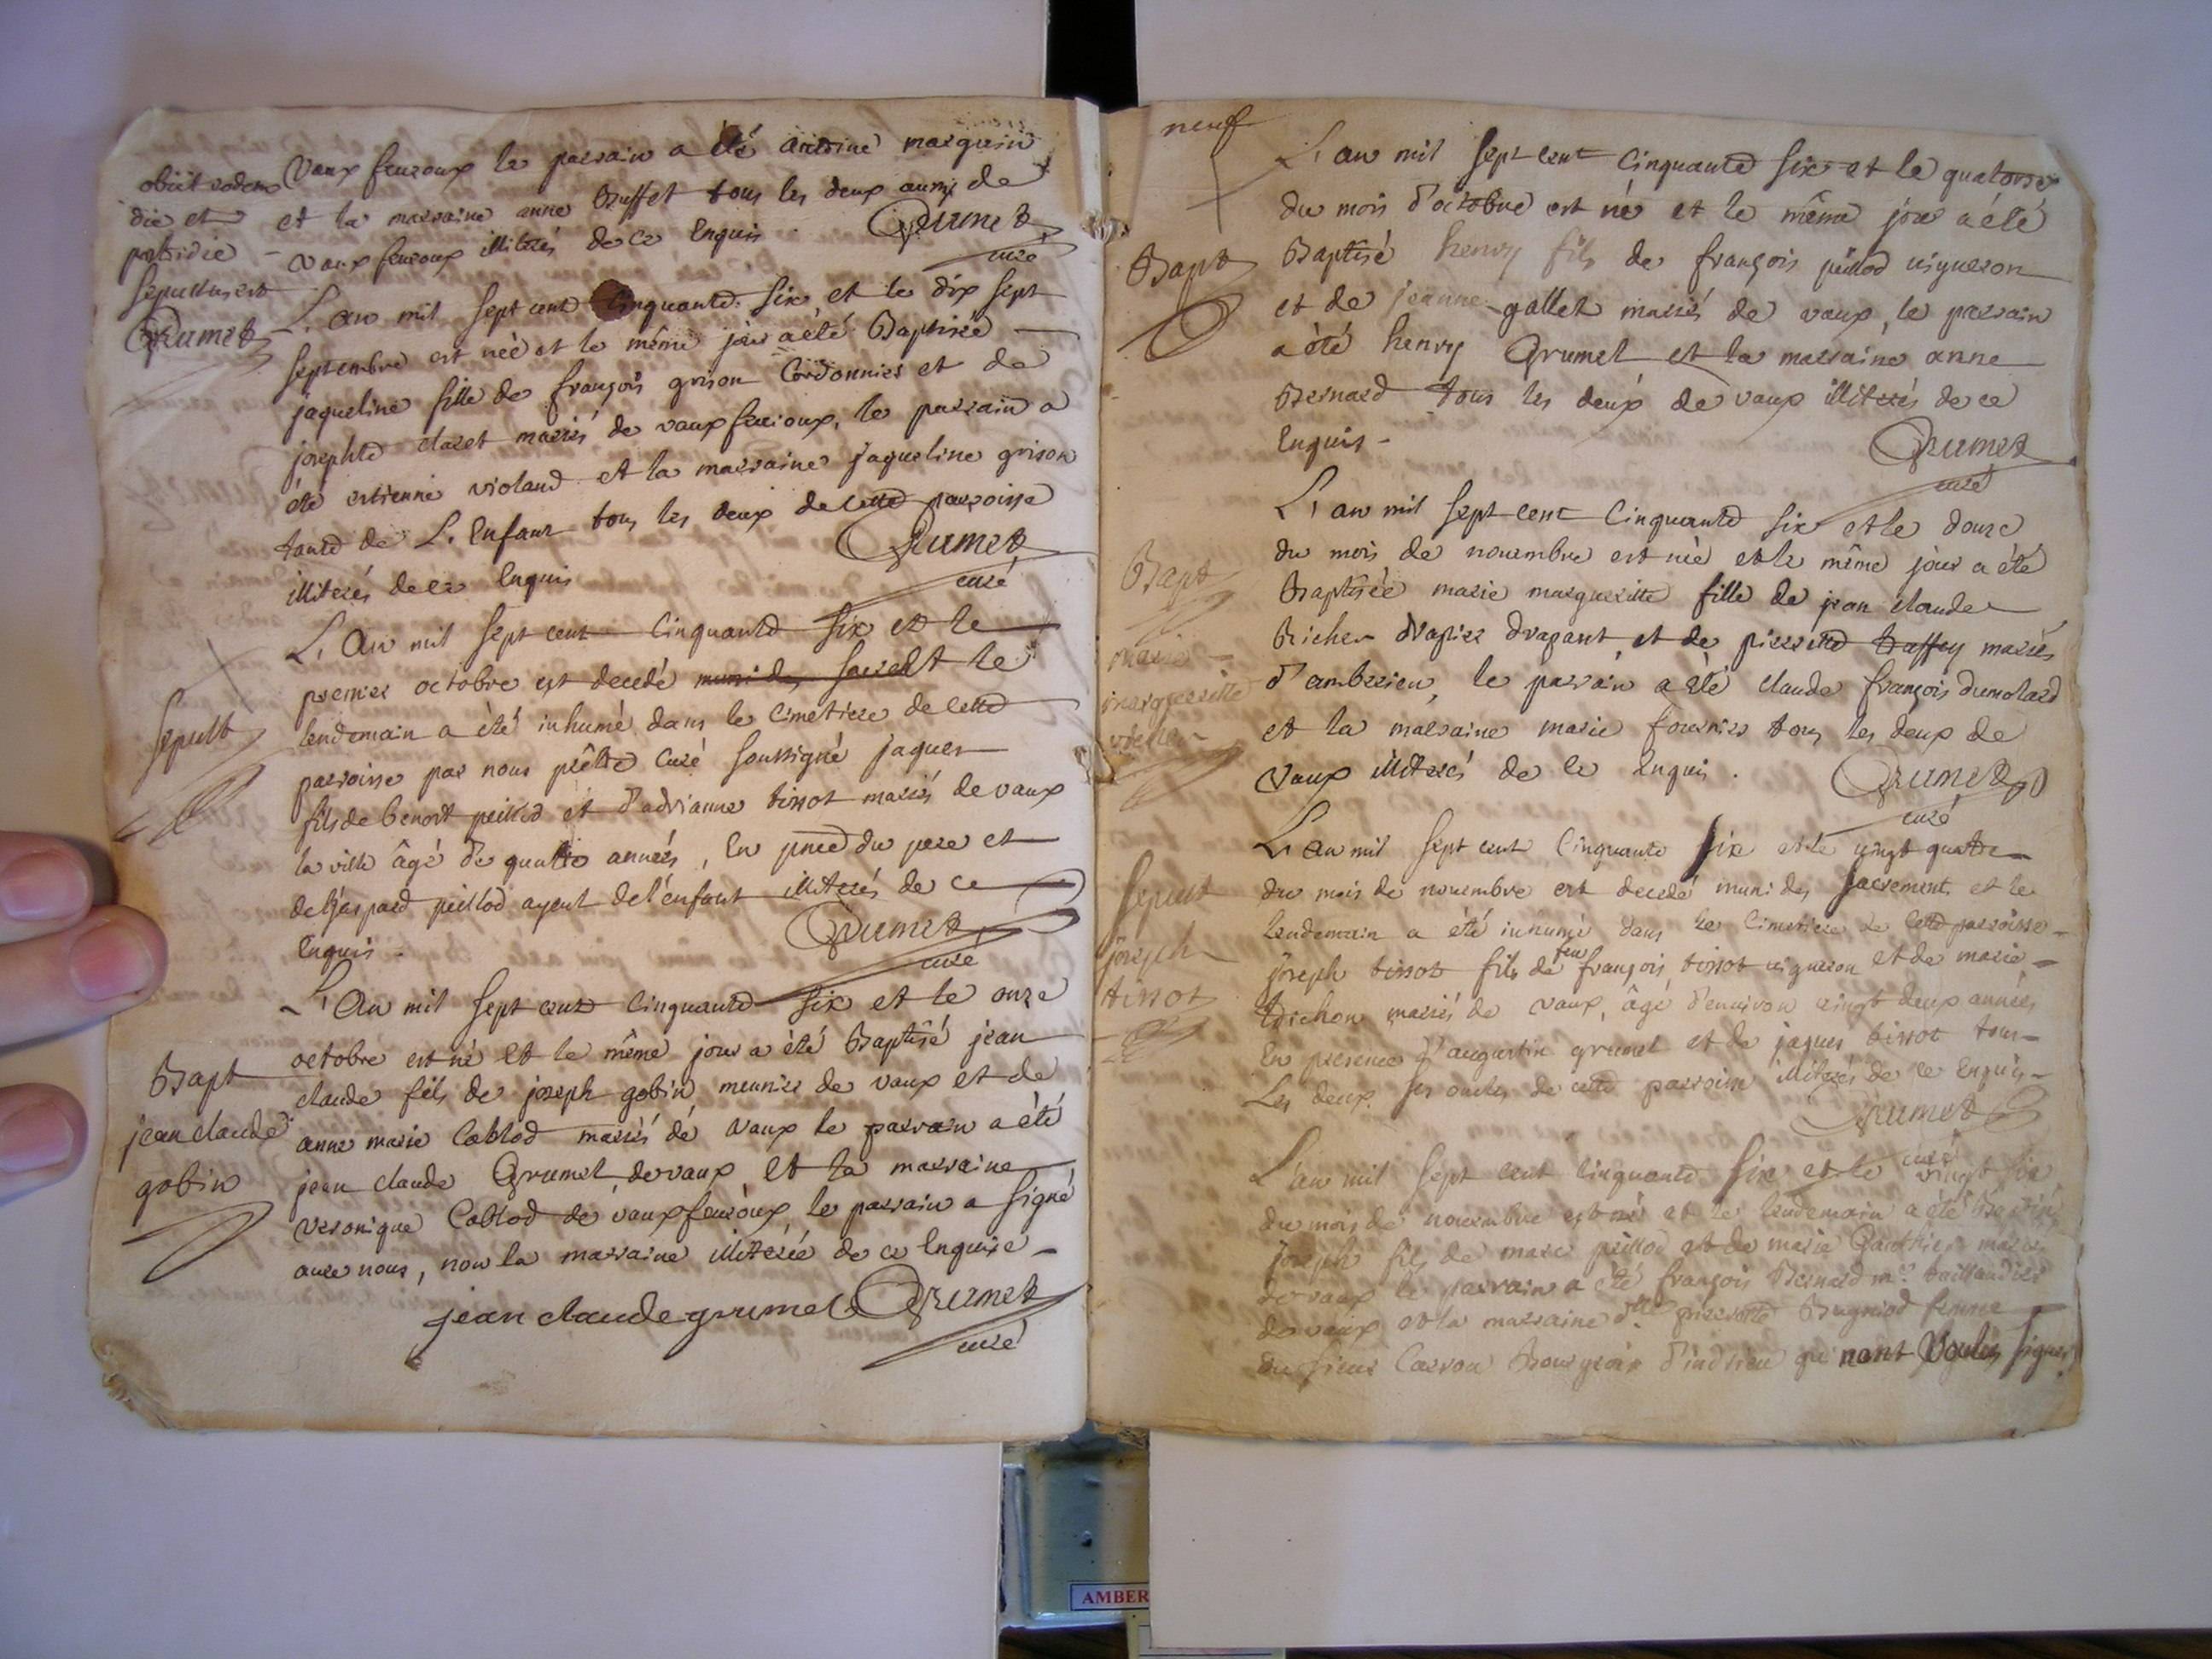 vaux fevroux le parrain a été antoine marguin
et la marraine anne Buffet tous les deux aussi de
vaux fevroux illiterés de ce Enquis .
Grumet
curé
obiit eodem
die et
postridie
sepultus est
Grumet
L'an mil sept cent cinquante six et le dix sept
septembre est née et le même jour a été Baptisée
jaqueline fille de françois grison Cordonnier et de
josephte claret mariés de vaux fevroux, le parrain a
été estienne violand et la marraine jaqueline grison
tante de L'Enfant tous les deux de cette parroisse
illiterés de ce Enquis
Grumet
curé
Sepult
L'an mil sept cent Cinquante six et le
premier octobre est decedé muni des sacre et le
lendemain a été inhumé dans le cimetiere de cette
parroisse par nous prêtre Curé soussigné jaques
fils de benoit peillod et d'adrianne tissot mariés de vaux
la ville âgé de quatre années, En pnce du pere et
de Gaspard peillod ayeul de l'enfant illiterés de ce
Enquis -
Grumet
curé
Bapt
jean claude
gobin
L'An mil sept cent Cinquante six et le onze
octobre est né Et le même jour a été Baptisé jean
claude fils de joseph gobin meunier de vaux et de
anne marie Coblod mariés de vaux le parrain a été
jean claude Grumet de vaux Et la marraine
veronique Coblod de vaux fevroux, le parrain a signé
avec nous, non la marraine illiterée de ce Enquise -
jean claude grumet Grumet
curé
neuf
Bapt
L'an mil sept cent Cinquante six et le quatorze
du mois d'octobre est né et le même jour a été
Baptisé henry fils de françois peillod vigneron
et de jeanne gallet mariés de vaux, le parrain
a été henry Grumet et la marraine anne
Bernard tous les deux de vaux illiterés de ce
Enquis -
Grumet
curé
Bapt
marie
marguerite
L'an mil sept cent Cinquante six et le douze
du mois de novembre est née et le même jour a été
Baptisée marie marguerite fille de jean claude
Richer drapier drapant, et de pierrette mariés
d'amberieu, le parrain a été claude françois dumolard
et la marraine marie fournier tous les deux de
Vaux illiterés de ce Enquis .
Grumet
curé
Sepult
joseph
tissot
L'an mil sept cent Cinquante six et le vingt quatre
du mois de novembre est decedé muni des sacrements et le
lendemain a été inhumé dans le Cimetiere de cette parroisse
joseph tissot fils de feu françois tissot vigneron et de marie
trichon mariés de vaux, âgé d'environ vingt deux années
En presence d'augustin grumet et de jaques tissot tous
Les deux ses oncles de cette parroisse illiterés de ce Enquis -
Grumet
curé
L'an mil sept cent Cinquante six et le vingt six
du mois de novembre est né et le lendemain a été
joseph fils de marc peillod et de marie Gauthier mariés
de vaux le parrain a été françois Bernard me taillandier
de vaux et la marraine dlle pierrette Bugniod femme
du sieur Carron Bourgeois d'indrieu qui nont Voulus signer
AMBER